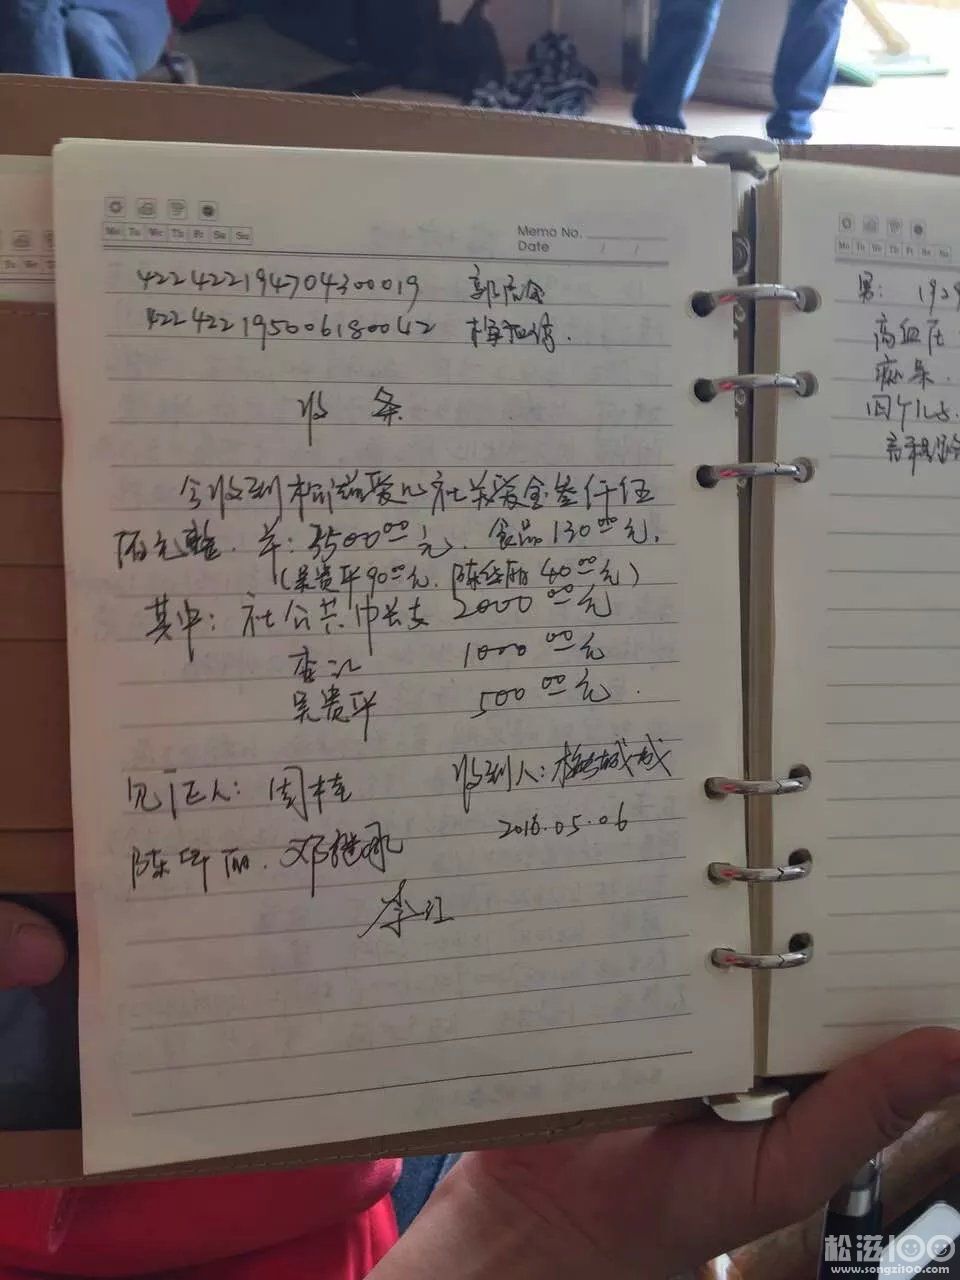 Mo Tu We Th Fr Sa Su
Memo No.
Date / /
422422194704300019 郭
422422195006180042
收 条
今收到松滋爱心社关爱金叁仟伍
佰元整. 羊: 3500.00元. 食品130.00元.
(吴贵平90.00元. 陈华丽 40.00元)
其中: 社公共巾长支 2000.00元
李江 1000.00元
吴贵平 500.00元.
见证人: 周桂 收到人: 梅城城
陈华丽. 邓继承 2016.05.06
李江
Mo Tu We Th Fr Sa Su
男: 1929
高血压
痴呆.
四个儿
Tu We
松滋100
www.songzi100.com